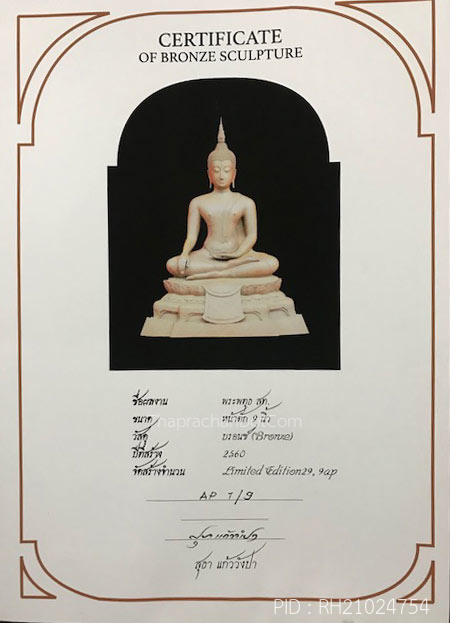 CERTIFICATE
OF BRONZE SCULPTURE
ชื่อผลงาน พระพุทธ สุท.
ขนาด หน้าตัก 9 นิ้ว
Thaprachan.com
วัสดุ บรอนซ์ (Bronze)
ปีที่สร้าง 2560
จัดสร้างจำนวน Limited Edition 29, 9ap
AP 7/9
สุธา แก้ววังปา
PID : RH21024754